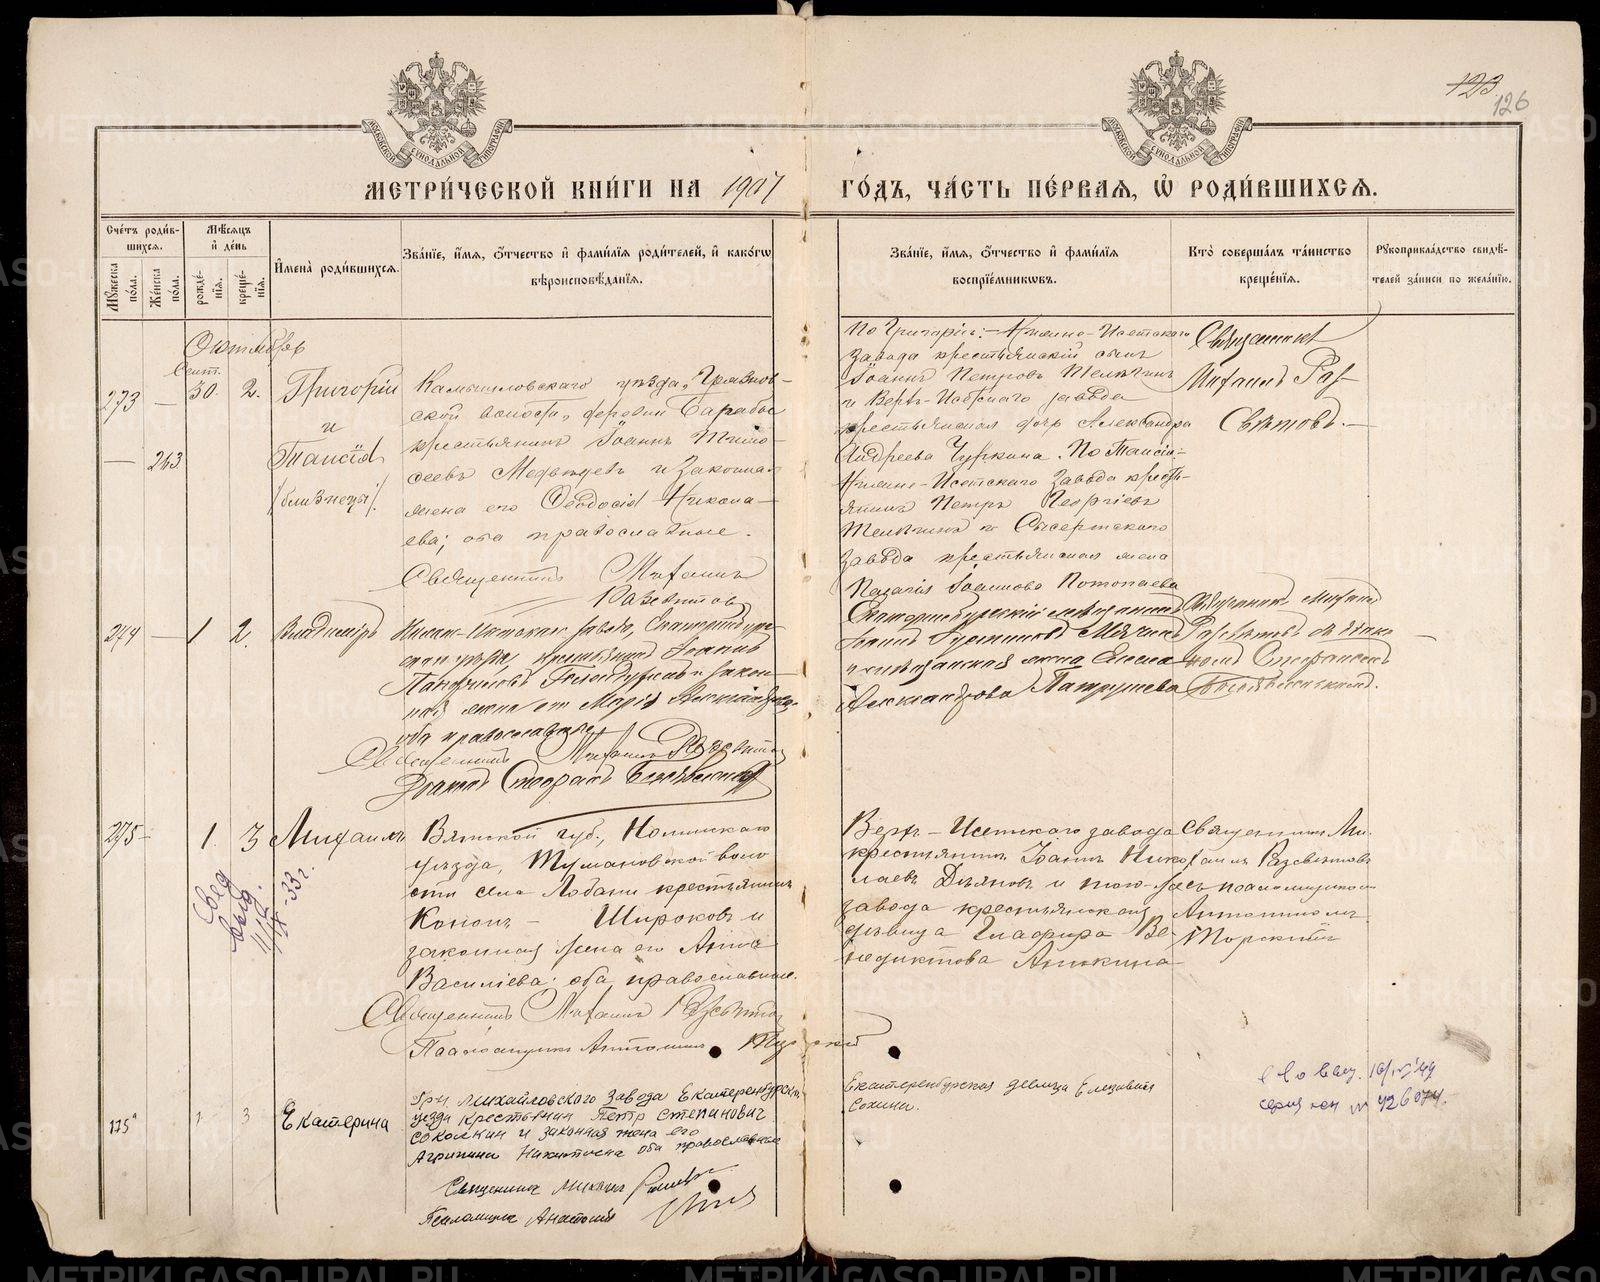 123
126
МОСКОВСКОЙ СѴНОДАЛЬНОЙ ТИПОГРАФІИ
МОСКОВСКОЙ СѴНОДАЛЬНОЙ ТИПОГРАФІИ
МЕТРИ́ЧЕСКОЙ КНИ́ГИ НА 1907
ГО́ДЪ, ЧА́СТЬ ПЕ́РВАѦ, Ѡ҆ РОДИ́ВШИХСѦ.
Сче́тъ роди́в-
шихсѧ.
Мꙋ́жеска по́ла.
Же́нска по́ла.
Мѣ́сѧцъ
и҆ де́нь
рожде́-
нїѧ.
креще́-
нїѧ.
И҆мена̀ роди́вшихсѧ.
Зва́нїе, и҆́мѧ, ѻ҆́тчество и҆ фами́лїѧ роди́телей, и҆ како́гѡ
вѣроисповѣ́данїѧ.
Зва́нїе, и҆́мѧ, ѻ҆́тчество и҆ фами́лїѧ
воспрїе́мниковъ.
Кто̀ соверша́лъ та́инство
креще́нїѧ.
Рꙋкоприкла́дство свидѣ́-
телей за́писи по жела́нїю.
Октябрь
Сент.
273 — 30. 2. Григорій
и
— 263. Таисія
/близнецы/.
Камышловскаго уѣзда, Грязнов-
ской волости, деревни
крестьянинъ Іоаннъ Тимо-
ѳеевъ Медвѣдевъ и законная
жена его Ѳеодосія Никола-
ева; оба православные.
Священникъ Михаилъ
Разсвѣтовъ
По Григоріѣ: Нижне-Исетскаго
завода крестьянскій сынъ
Іоаннъ Петровъ
и Верхъ-Исетскаго завода
крестьянская дочь Александра
Андреева Чуркина. По Таисіи:
Нижне-Исетскаго завода кресть-
янинъ Петръ Георгіевъ
и Сысертскаго
завода крестьянская жена
Іоаннова Потопаева
Священникъ
Михаилъ Раз-
свѣтовъ.
274 — 1 2. Владиміръ
Нижне-Исетскаго завода, Екатеринбург-
скаго уѣзда, крестьянинъ Іоаннъ
Панфиловъ и закон-
ная жена его Марія Александрова,
оба православные
Священникъ Михаилъ Разсвѣтовъ
Діаконъ Стефанъ
Екатеринбургскій мѣщанинъ
и мѣщанская жена Елена
Александрова Патрушева
Священникъ Михаилъ
Разсвѣтовъ съ діако-
номъ Стефаномъ
275 — 1. 3 Михаилъ
Вятской губ., Нолинскаго
уѣзда, Тумановской воло
сти села Лобани крестьянинъ
Кононъ — Широковъ и
законная жена его Анна
Васильева; оба православные.
Священникъ Михаилъ Разсвѣтовъ
Псаломщикъ Антонинъ Торскій
Верхъ-Исетскаго завода
крестьянинъ Іоаннъ Нико-
лаевъ Дьяковъ и того-же
завода крестьянская
дѣвица Глафира Ве-
недиктова Аникина
Священникъ Ми-
хаилъ Разсвѣтовъ
съ псаломщикомъ
Антониномъ
Торскимъ
Свед
выд.
11/IX-33 г.
175а 1 3 Екатерина
Грн Михайловского Завода Екатеренбурскаго
уезда Крестьянин Петр Степанович
Соколкин и законная жена его
Агрипина Никитична оба православные
Священник Михаил
Псаломщик Анатолий
Екатеренбурская девица Елезавета
Сохина.
С-во выд. 16/IV 49
серия № 426074.
METRIKI.GASO-URAL.RU